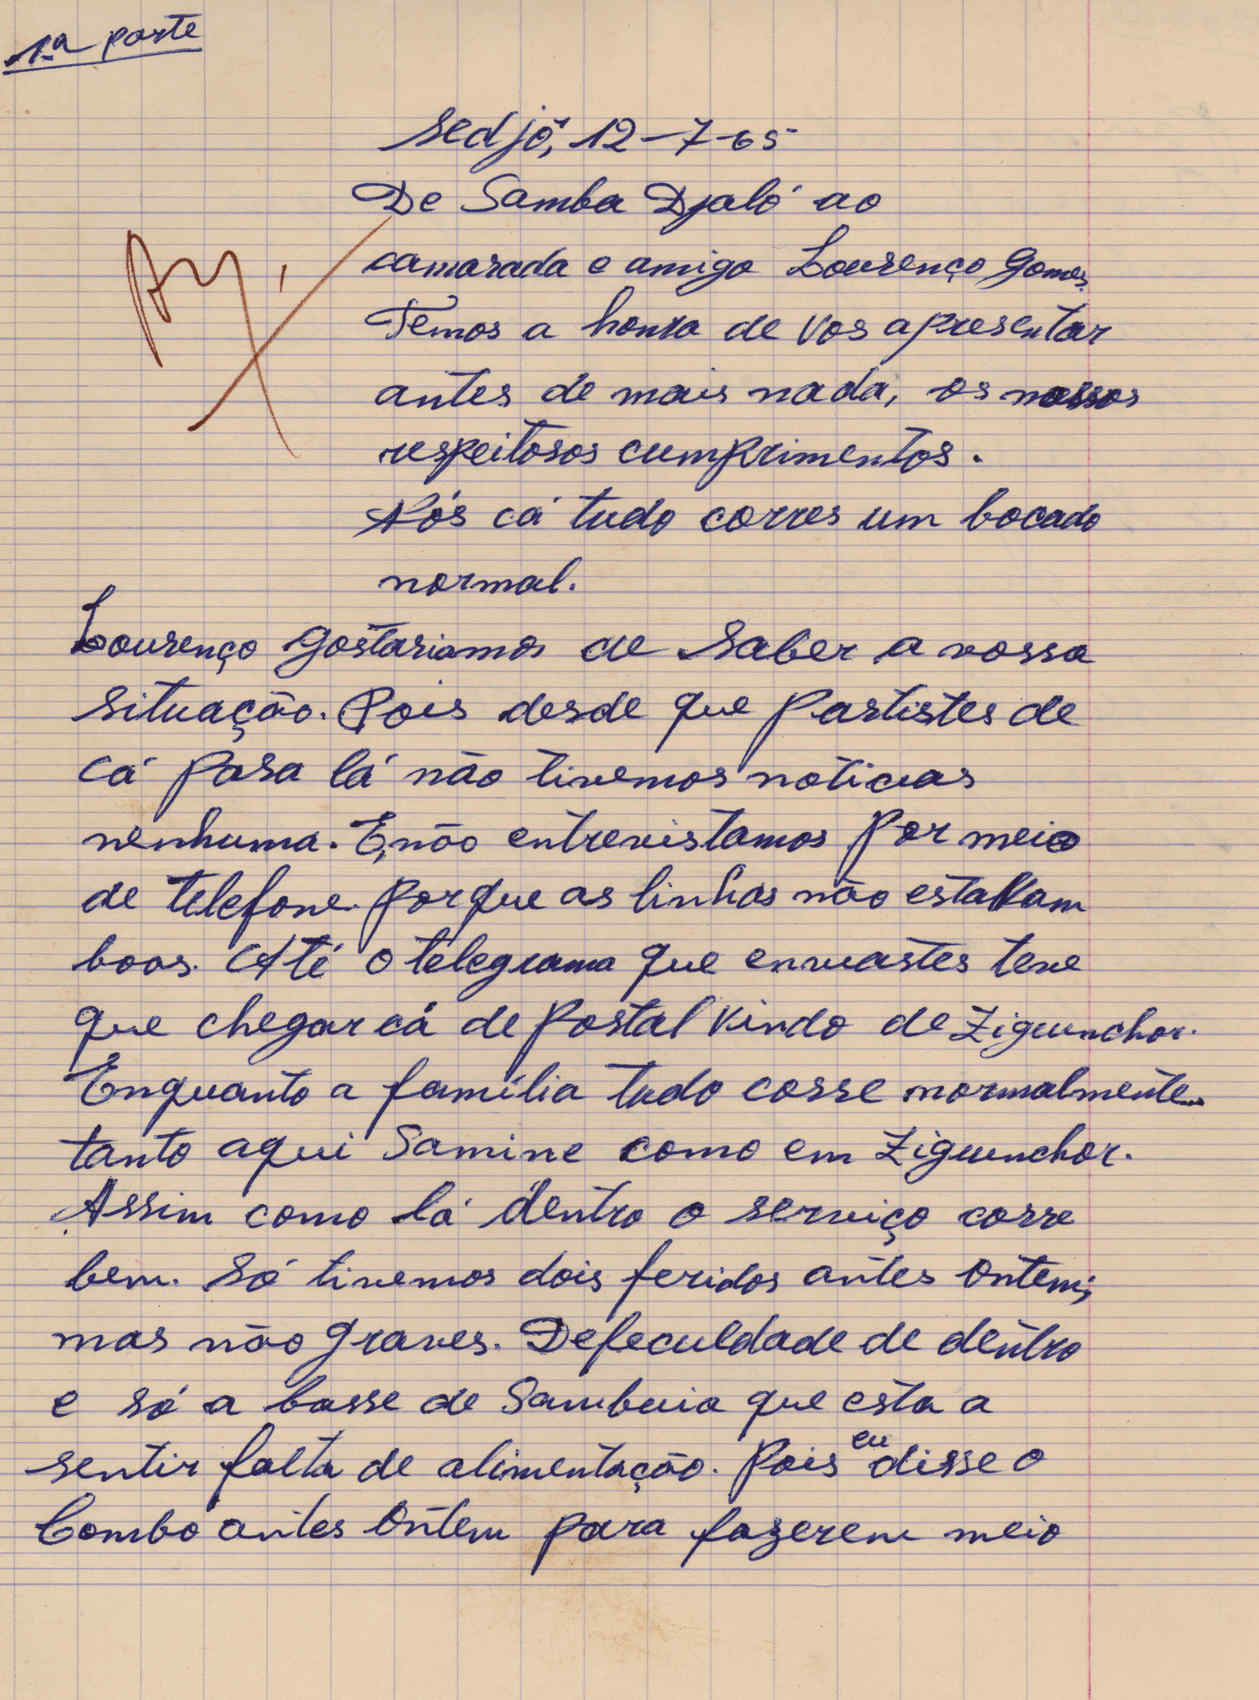 1.ª parte
Sedjô, 12-7-65
De Samba Djaló ao
camarada e amigo Lourenço Gomes.
Temos a honra de vos apresentar
antes de mais nada, os nossos
respeitosos cumprimentos.
Nós cá tudo corres um bocado
normal.
Lourenço gostariamos de saber a vossa
situação. Pois desde que partistes de
cá para lá não tivemos noticias
nenhuma. E, não entrevistamos por meio
de telefone. porque as linhas não estavam
boas. Até o telegrama que enviastes teve
que chegar cá de postal vindo de Ziguinchor.
Enquanto a família tudo corre normalmente
tanto aqui Samine como em Ziguinchor.
Assim como lá dentro o serviço corre
bem. Só tivemos dois feridos antes ontem,
mas não graves. Defeculdade de dentro
e só a basse de Sambuia que esta a
sentir falta de alimentação. Pois eu disse o
Bombo antes ontem para fazerem meio